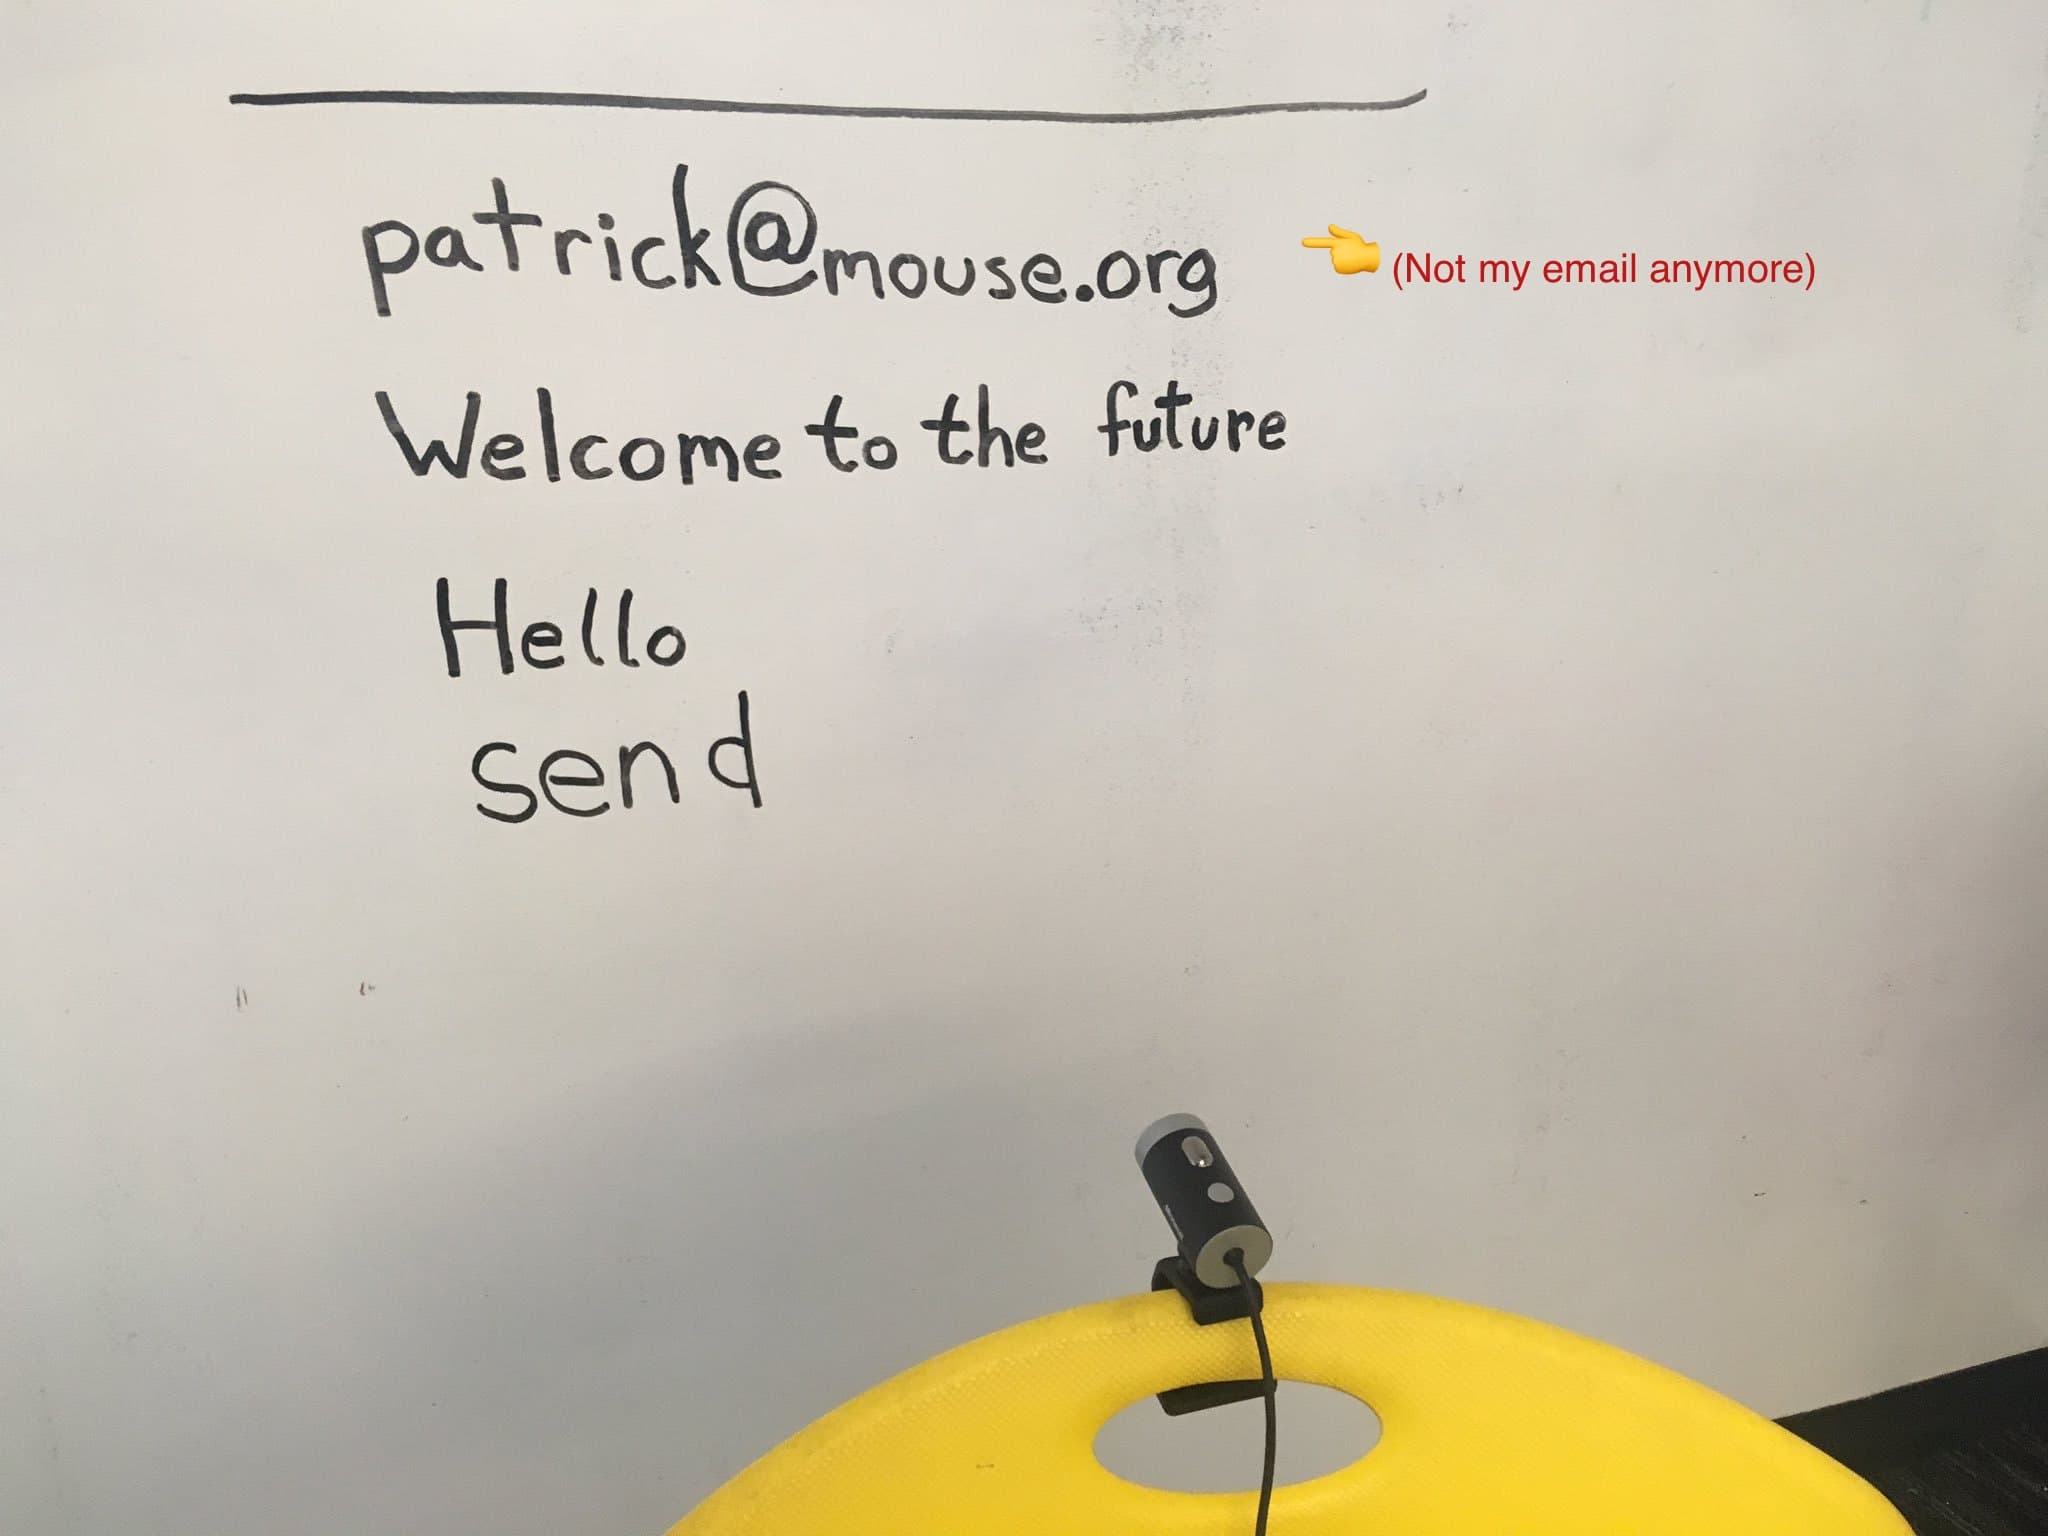 patrick@mouse.org 👈 (Not my email anymore)
Welcome to the future
Hello
send